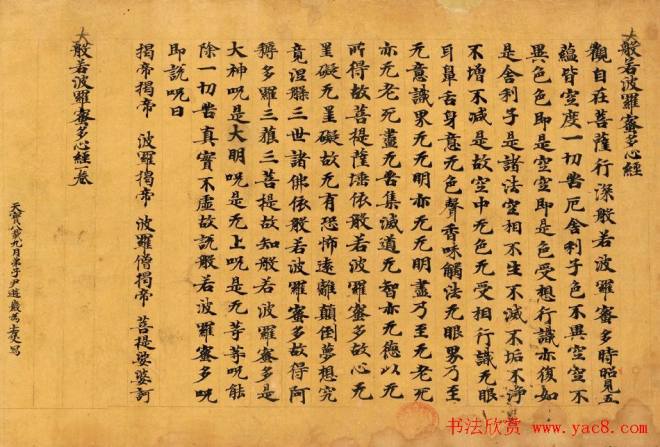 大般若波羅蜜多心經
觀自在菩薩行深般若波羅蜜多時照見五
蘊皆空度一切苦厄舍利子色不異空空不
異色色即是空空即是色受想行識亦復如
是舍利子是諸法空相不生不滅不垢不净
不增不减是故空中无色无受相行識无眼
耳鼻舌身意无色聲香味觸法无眼界乃至
无意識界无无明亦无无明盡乃至无老死
亦无老死盡无苦集滅道无智亦无德以无
所得故菩提薩埵依般若波羅蜜多故心无
罣礙无罣礙故无有恐怖遠離顛倒夢想究
竟涅槃三世諸佛依般若波羅蜜多故得阿
耨多羅三藐三菩提故知般若波羅蜜多是
大神呪是大明呪是无上呪是无等等呪能
除一切苦真實不虛故説般若波羅蜜多呪
即説呪曰
揭帝揭帝 波羅揭帝 波羅僧揭帝 菩提娑婆訶
大般若波羅蜜多心經卷
天寶八載九月弟子尹遊巖爲寫
书法欣赏
www.yac8.com